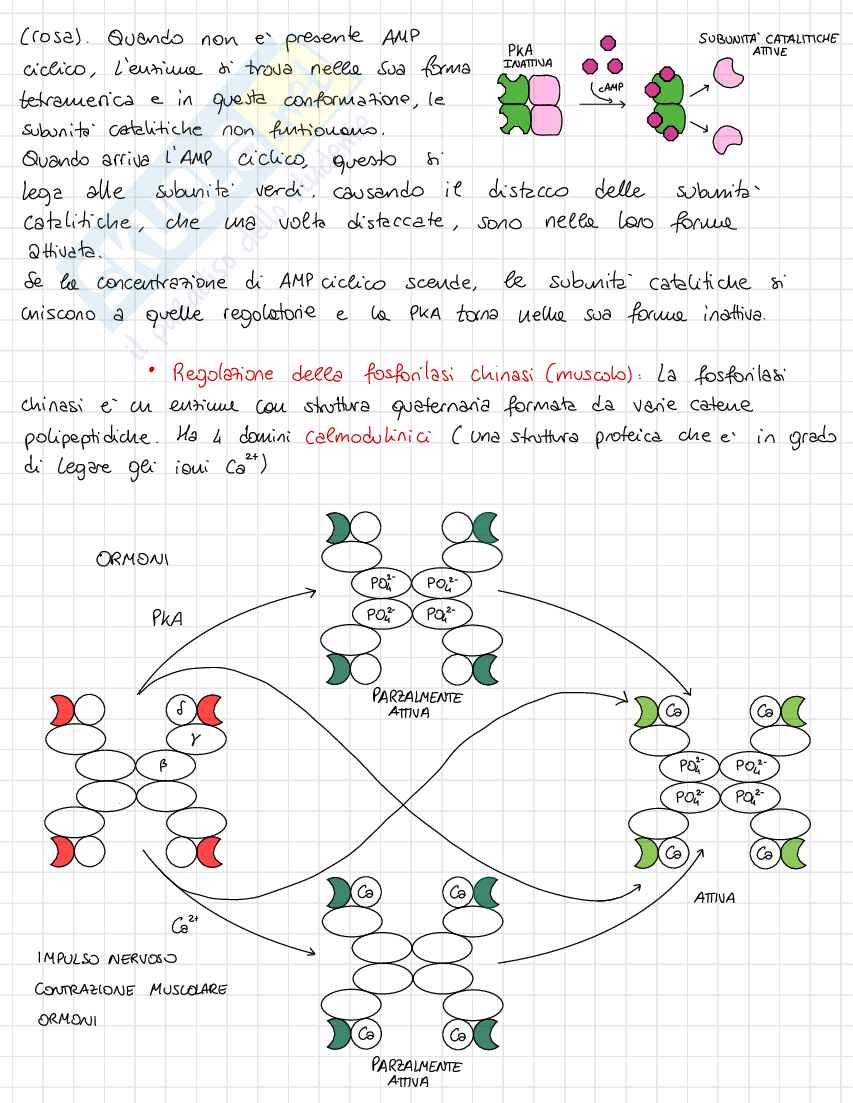 (rosa). Quando non è presente AMP
ciclico, l'enzima si trova nella sua forma
tetramerica e in questa conformazione, le
subunità catalitiche non funzionano.
Quando arriva l'AMP ciclico, questo si
lega alle subunità verdi, causando il distacco delle subunità
catalitiche, che una volta distaccate, sono nella loro forma
attivata.
Se la concentrazione di AMP ciclico scende, le subunità catalitiche si
uniscono a quelle regolatorie e la PKA torna nella sua forma inattiva.
PKA
INATTIVA
cAMP
SUBUNITÀ CATALITICHE
ATTIVE
• Regolazione della fosforilasi chinasi (muscolo): La fosforilasi
chinasi è un enzima con struttura quaternaria formata da varie catene
polipeptidiche. Ha 4 domini calmodulinici (una struttura proteica che è in grado
di legare gli ioni Ca²⁺)
ORMONI
PKA
PO₄²⁻ PO₄²⁻
PO₄²⁻ PO₄²⁻
PARZALMENTE
ATTIVA
δ
γ
β
Ca Ca
PO₄²⁻ PO₄²⁻
PO₄²⁻ PO₄²⁻
Ca Ca
ATTIVA
Ca²⁺
IMPULSO NERVOSO
CONTRAZIONE MUSCOLARE
ORMONI
Ca Ca
Ca Ca
PARZALMENTE
ATTIVA
SKUOLA.net
il paradiso dello studente